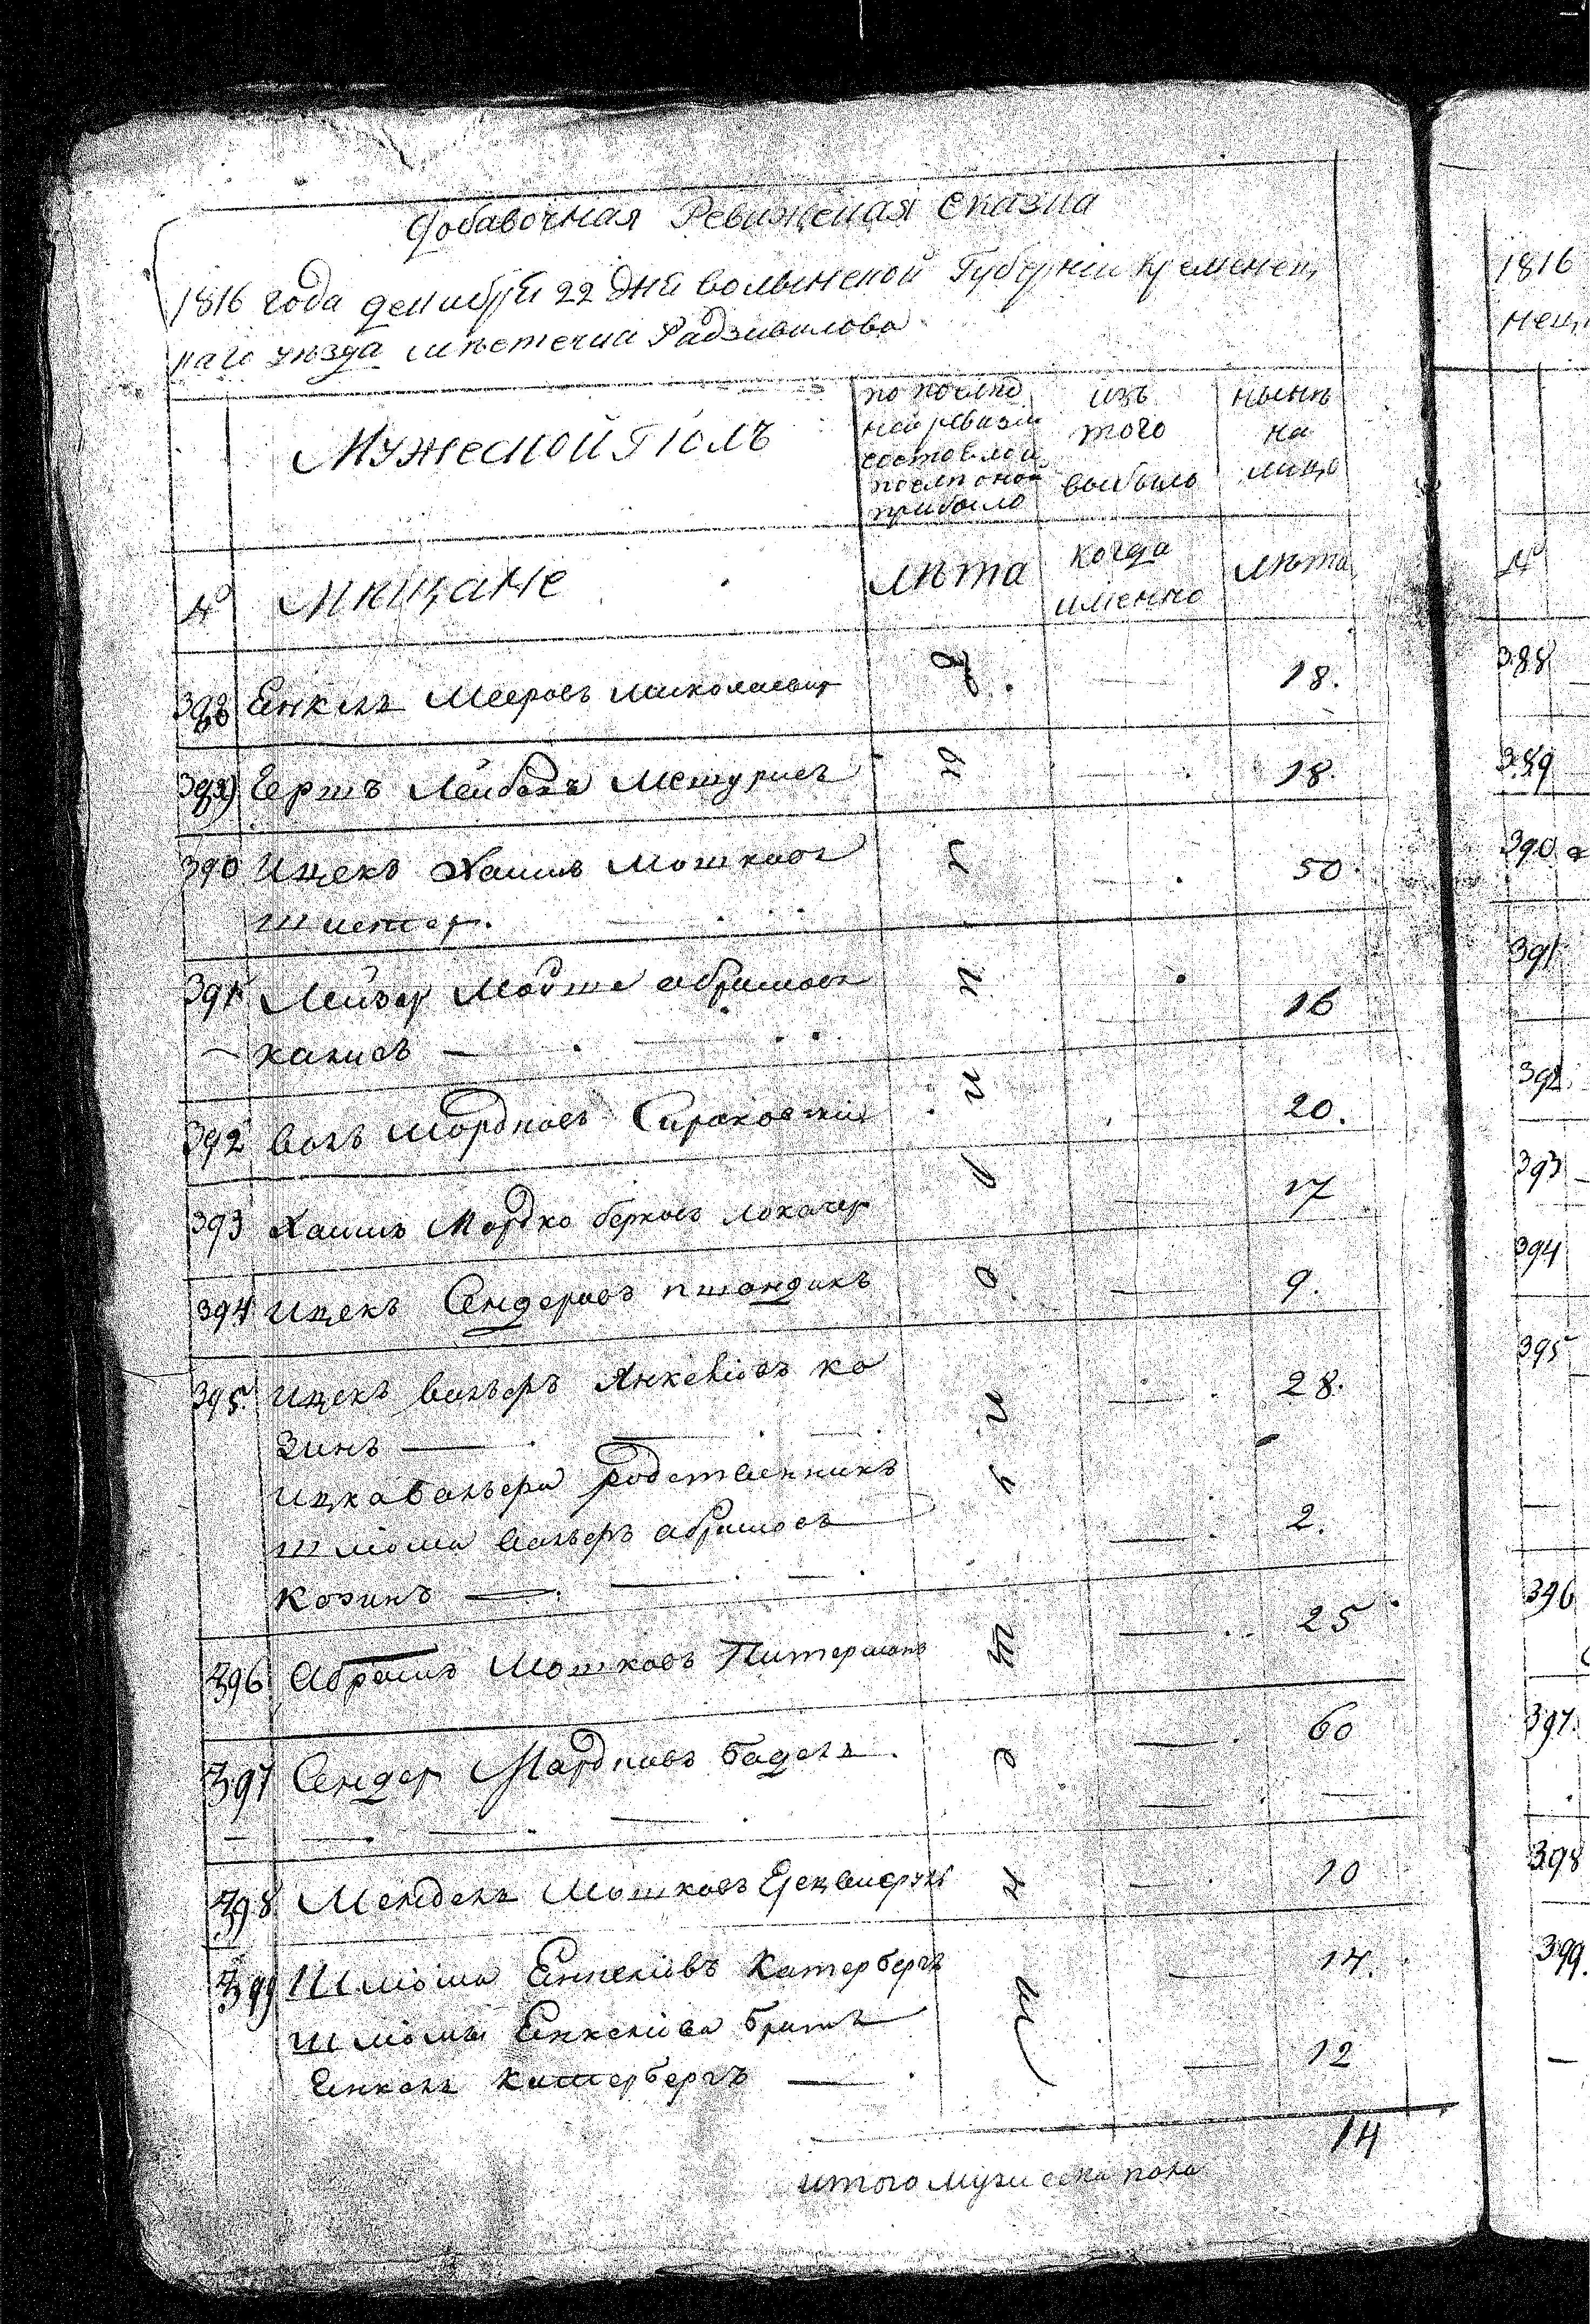 Добавочная Ревижская Сказка
1816 года декабря 22 дня волынской Губернии Кременец
каго уезда мѣстечка Радзивилова
Мужеской Полъ
по послѣд
ней ревизи
состояло и
послѣ оной
прибыло
изъ
того
выбыло
нынѣ
на
лицо
№ Мѣщане
лѣта
когда
именно
лѣта
388 Енкель Мееровъ Миколаевит 18.
389 Гершъ Лейбовъ 18.
390 Ицекъ Хаимъ Мошковъ 50.
391 Лейзер абрамовъ 16
392 Волъ Мордковъ 20.
393 Хаимъ Мордко берковъ локачер 17
394 Ицекъ Сендеровъ 9.
395. Ицекъ Вальеръ Янкелiовъ ко 28.
зинъ
Ицка Вальера родственникъ
шліома Вальеръ абрамовъ 2.
козинъ
396 Абрамъ Мошковъ Питерманъ 25
397 Сендер Мардковъ 60
398 Мендель Мошковъ 10
399 Шліома Енкеліовъ Катербергъ 14.
шліомы Енкеліова братъ
Енкель Катербергъ 12
14
итого мужеска пола
1816
нец
№
388
389
390
391
392
393
394
395
396
397.
398
399.